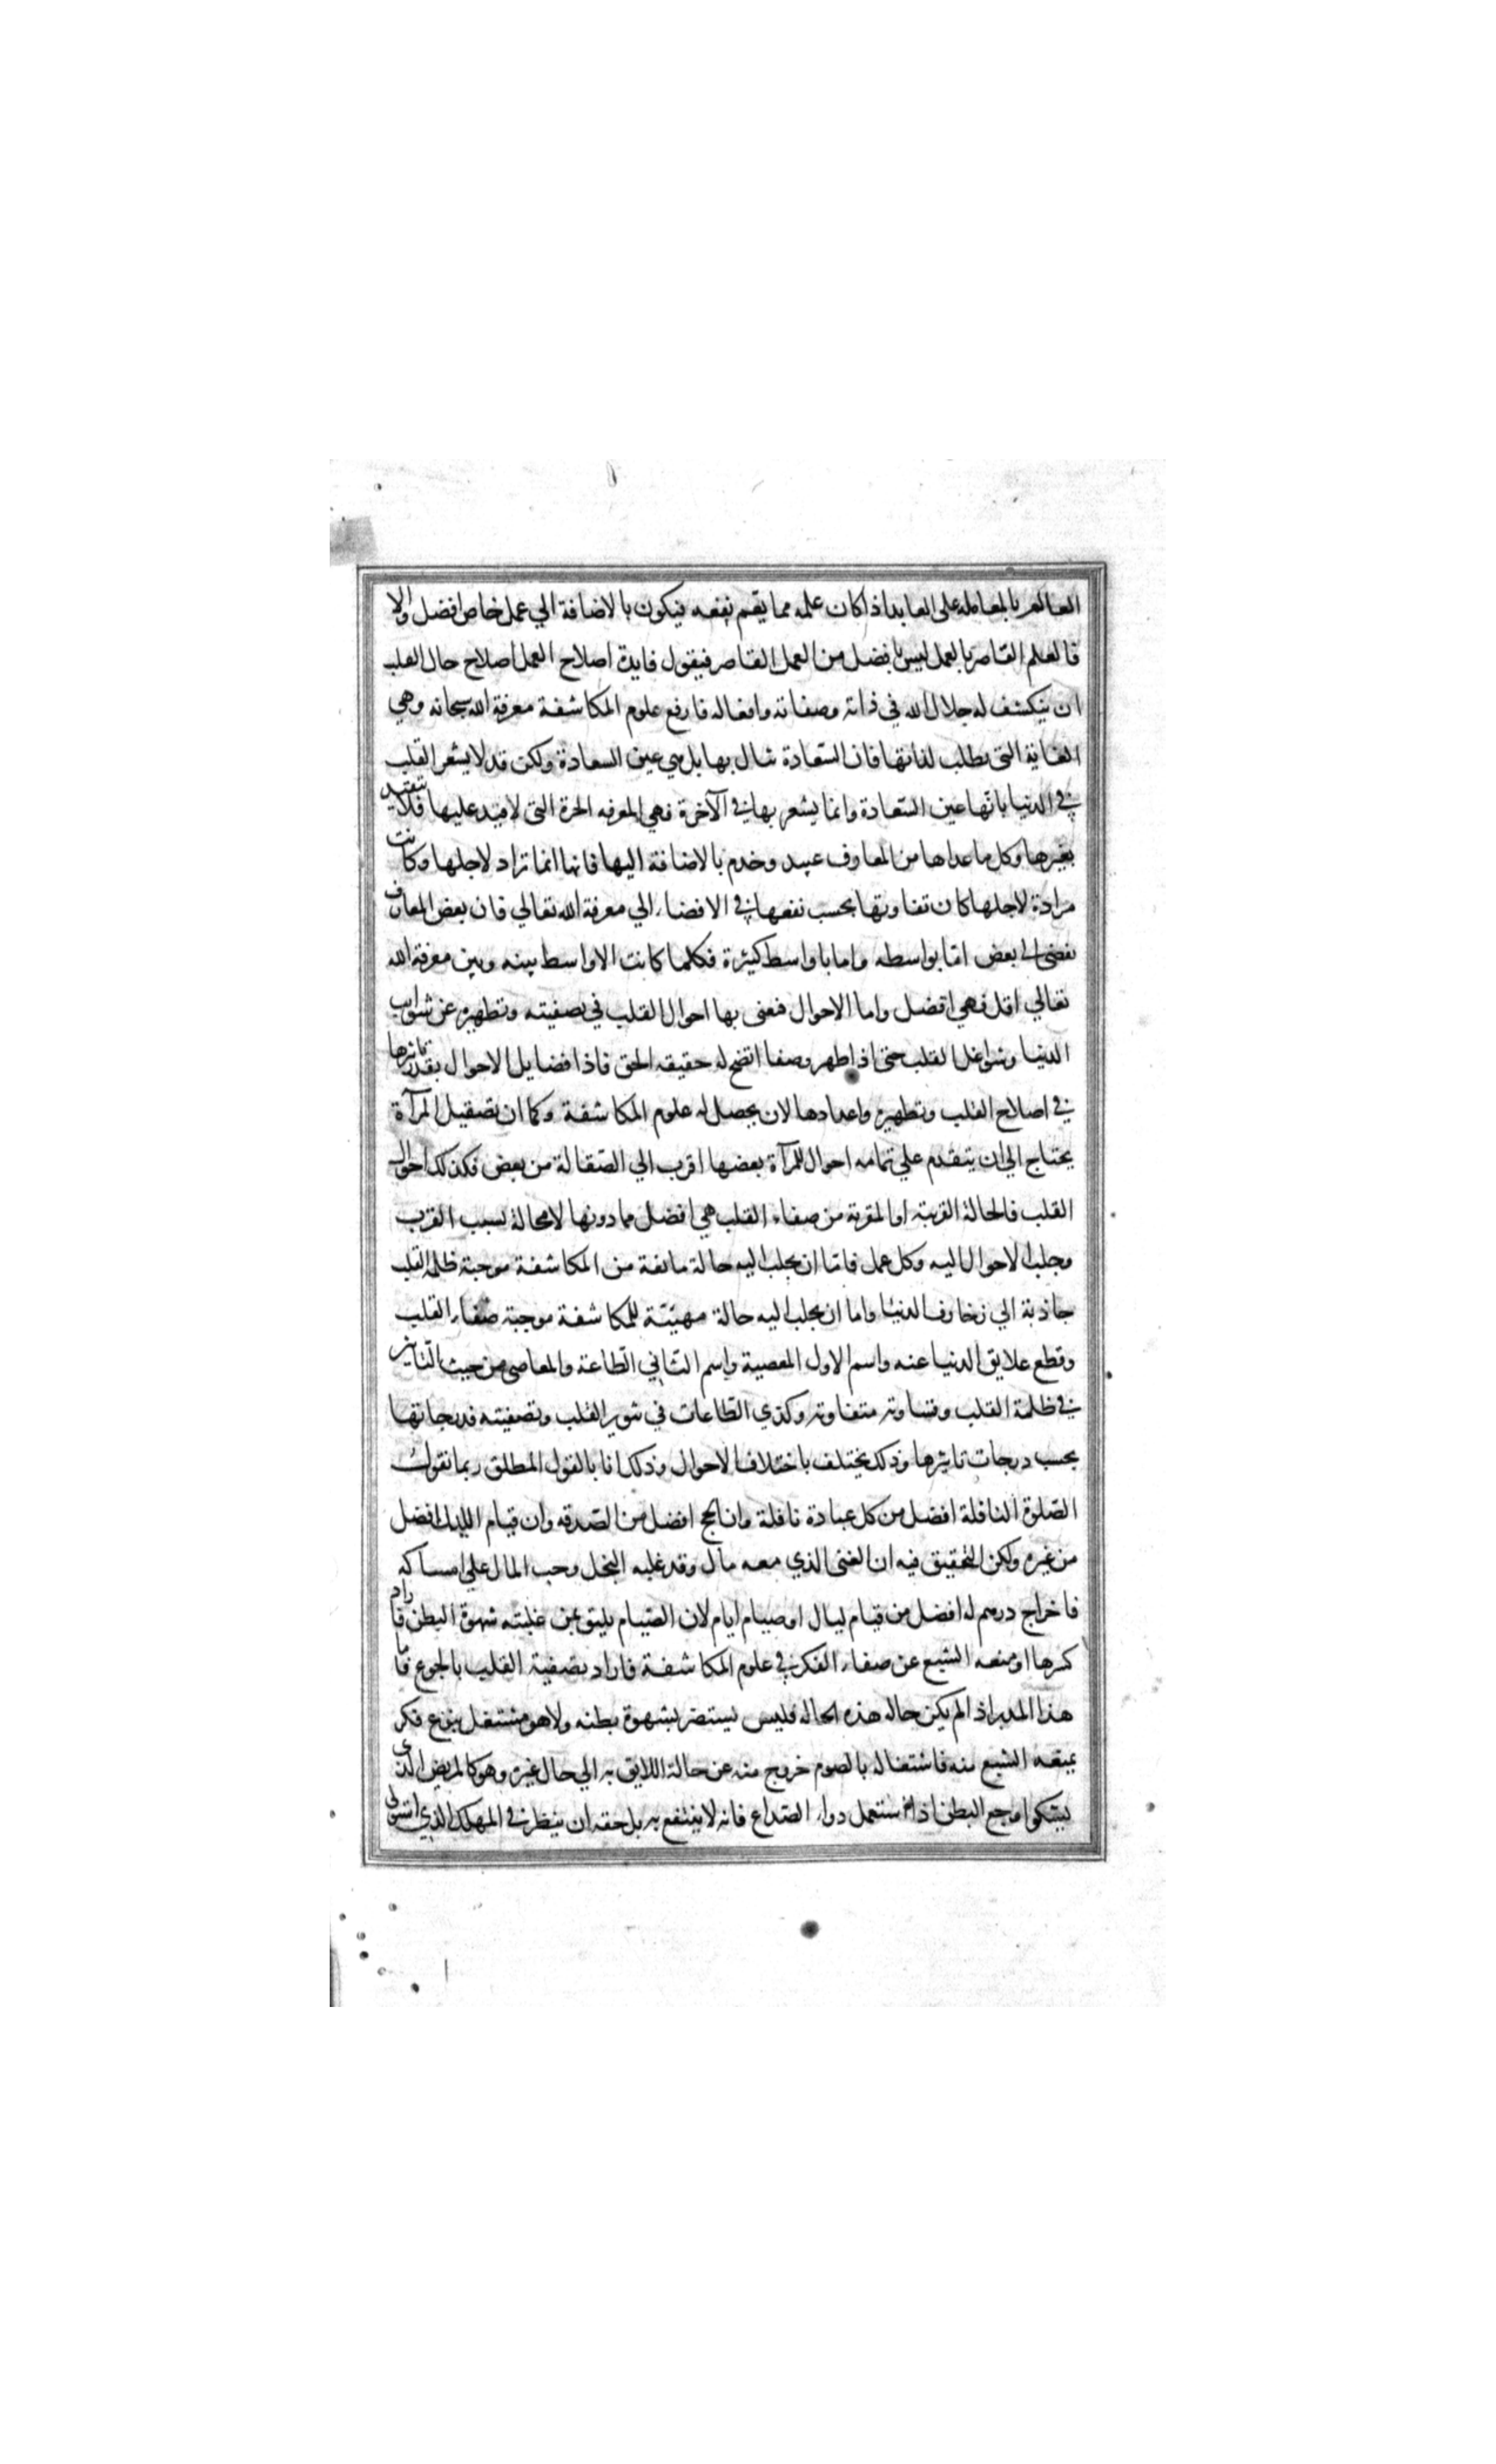 العالم بالمعامله على العابد اذا كان علمه مما يقيم نفعه فيكون بالاضافة الي عمل خاص افضل والا
فالعلم القاصر بالعمل ليس بافضل من العمل القاصر فيقول فايدة اصلاح العمل اصلاح حال القلب
ان ينكشف له جلال الله في ذاته وصفاته وافعاله فارفع علوم المكاشفة معرفة الله سبحانه وهي
الغاية التى يطلب لذاتها فان السعادة تنال بها بل هي عين السعادة ولكن قد لا يشعر القلب
في الدنيا بانها عين السعادة وانما يشعر بها في الآخرة فهي المعرفه الحرة التى لا قيد عليها فلا يتقيد
بغيرها وكل ما عداها من المعارف عبيد وخدم بالاضافة اليها فانها انما تراد لاجلها وكانت
مرادة لاجلها كان تفاوتها بحسب نفعها في الافضاء الي معرفة الله تعالي فان بعض المعارف
يفضى الى بعض اما بواسطه واما باواسط كثيرة فكلما كانت الاواسط بينه وبين معرفة الله
تعالي اقل فهي افضل واما الاحوال فنعنى بها احوال القلب في تصفيته وتطهيره عن شوايب
الدنيا وشواغل القلب حتى اذا طهر وصفا اتضح له حقيقه الحق فاذا فضايل الاحوال بقدر تاثيرها
في اصلاح القلب وتطهيره واعدادها لان يحصل له علوم المكاشفة وكما ان تصقيل المرآة
يحتاج الي ان يتقدم علي تمامه احوال للمرآة بعضها اقرب الي الصقالة من بعض فكذلك احوال
القلب فالحالة القريبة او المقربة من صفاء القلب هي افضل مما دونها لا محالة بسبب القرب
وجلب الاحوال اليه وكل عمل فاما ان يجلب اليه حالة مانعة من المكاشفة موجبة ظلمه القلب
جاذبة الي زخارف الدنيا واما ان يجلب اليه حالة مهيئة للمكاشفة موجبة صفاء القلب
وقطع علايق الدنيا عنه واسم الاول المعصية واسم الثاني الطاعة والمعاصى من حيث التاثير
في ظلمة القلب وقساوته متفاوته وكذي الطاعات في تنوير القلب وتصفيته فدرجاتها
بحسب درجات تاثيرها وذلك يختلف باختلاف الاحوال وذلك انا بالقول المطلق ربما نقول
الصلوة النافلة افضل من كل عبادة نافلة وان الحج افضل من الصدقه وان قيام الليل افضل
من غيره ولكن التحقيق فيه ان الغنى الذي معه مال وقد غلبه البخل وحب المال علي امساكه
فاخراج درهم له افضل من قيام ليال او صيام ايام لان الصيام يليق بمن غلبته شهوة البطن فاراد
كسرها او منعه الشبع عن صفاء الفكر في علوم المكاشفة فاراد تصفية القلب بالجوع فاما
هذا المدبر اذا لم يكن حاله هذه الحاله فليس يستضر بشهوة بطنه ولا هو مشتغل بنوع فكر
يمنعه الشبع منه فاشتغاله بالصوم خروج منه عن حالة اللايق به الي حال غيره وهو كالمريض الذى
يشكوا وجع البطن اذا استعمل دواء الصداع فانه لا ينتفع به بل حقه ان ينظر في المهلك الذي استولى